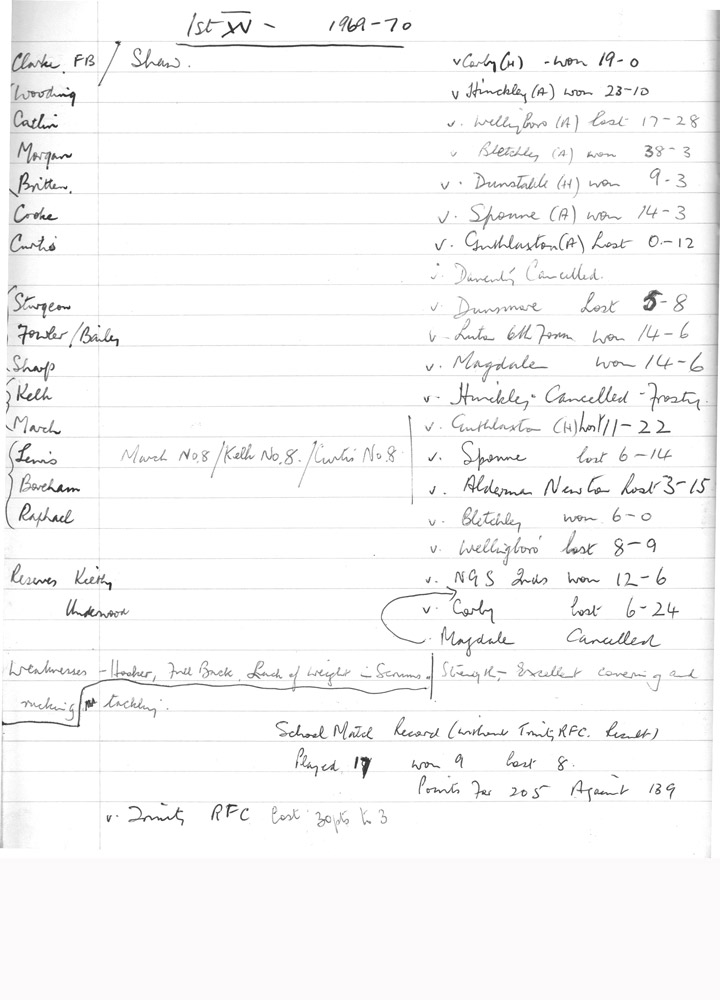 1st XV - 1969-70
Clarke. FB / Shaw. v Corby (H) - won 19-0
Wooding v Hinckley (A) won 23-10
Catlin v. Wellingboro (A) lost 17-28
Morgan v Bletchley (A) won 38-3
Britten. v. Dunstable (H) won 9-3
Cooke v. Sponne (A) won 14-3
Curtis v. Guthlaxton (A) Lost 0-12
v. Cancelled.
Sturgeon v. Dunsmore Lost 5-8
Fowler / Bailey v - Luton 6th Form won 14-6
Sharp v. Magdale won 14-6
Kelh v. Hinckley - Cancelled - Frosty.
March v. Guthlaxton (H) lost 11-22
Lewis March No.8 / Kelh No.8. / Curtis No.8 v. Sponne lost 6-14
Boreham v. Alderman Newton Lost 3-15
Raphael v. Bletchley won 6-0
v. Wellingboro' lost 8-9
Reserves v. NGS 2nds won 12-6
Underwood v. Corby lost 6-24
. Magdale Cancelled
Weaknesses - Hooker, Full Back. Lack of weight in Scrums. Strength - Excellent covering and
rucking tackling.
School Match Record (without Trinity RFC. Result)
Played 17 won 9 lost 8.
Points For 205 Against 189
v. Trinity RFC Lost 30pts to 3